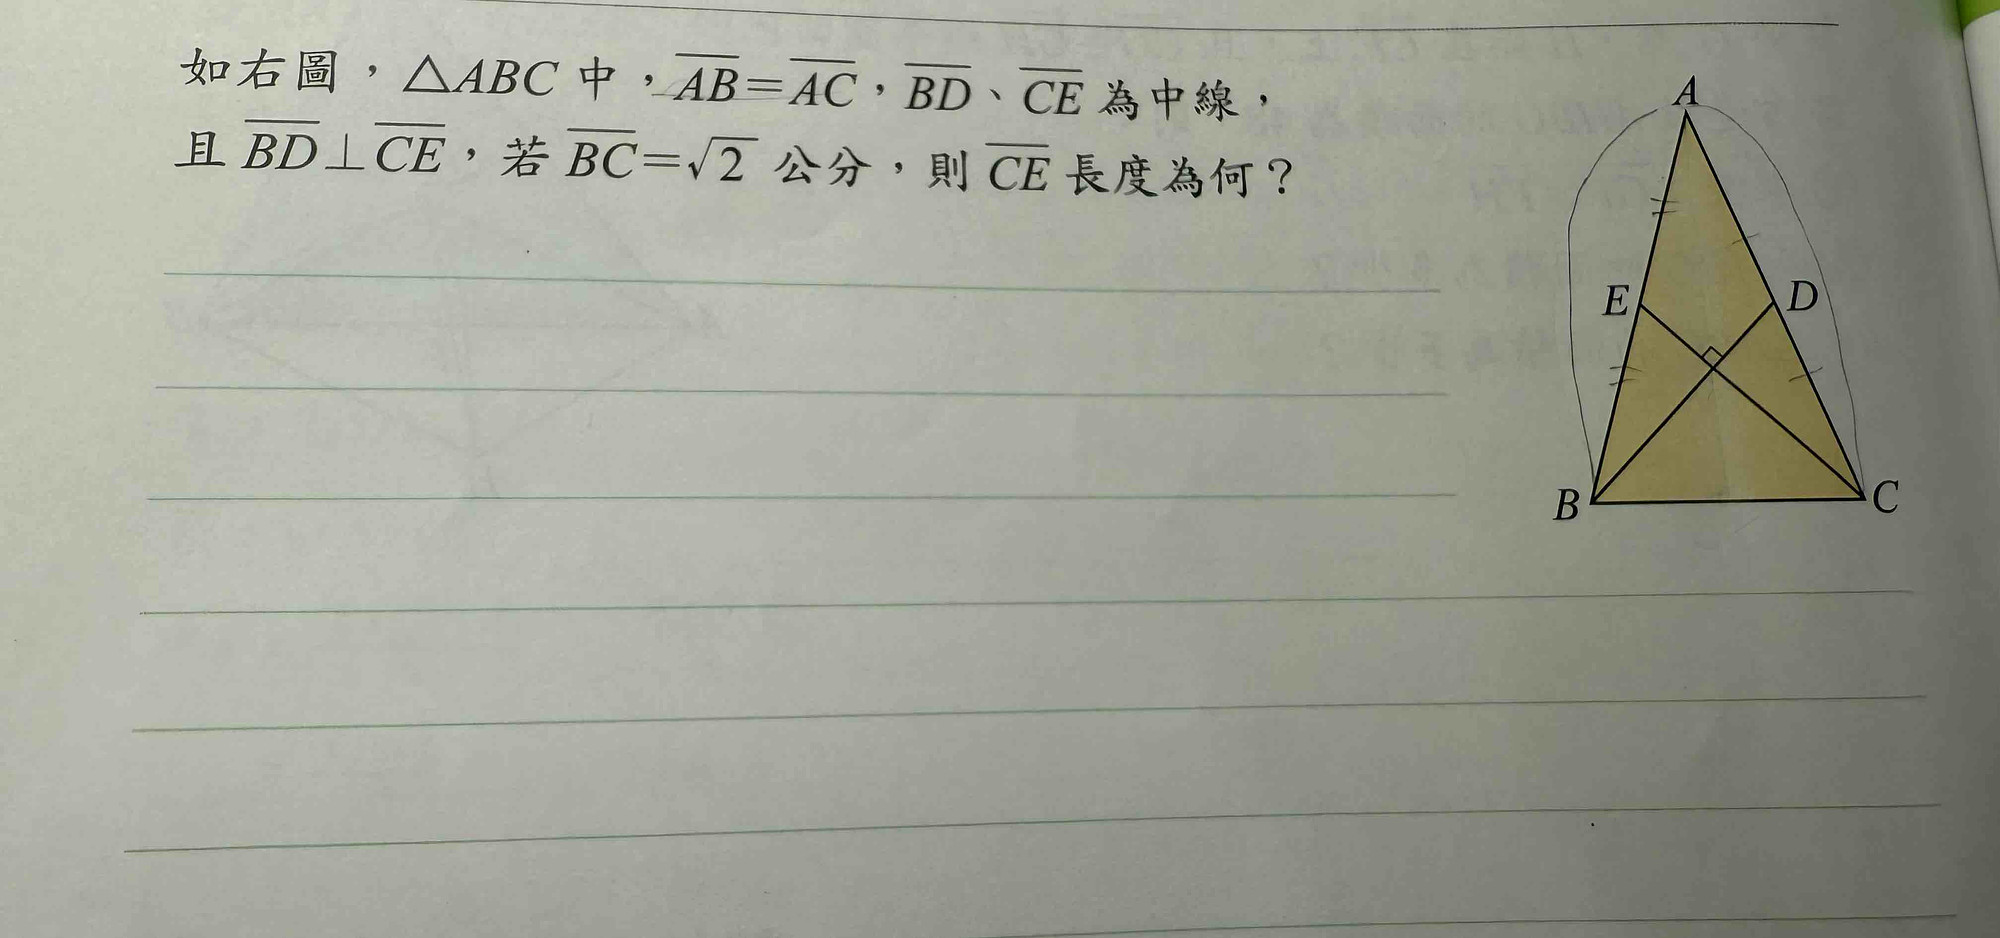 如右圖，△ABC 中，AB=AC，BD、CE 為中線，
且 BD⊥CE，若 BC=√2 公分，則 CE 長度為何？
A
E
D
B
C